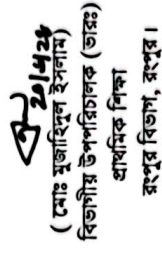 20/4/26
( মোঃ মুজাহিদুল ইসলাম)
বিভাগীয় উপপরিচালক (ভারঃ)
প্রাথমিক শিক্ষা
রংপুর বিভাগ, রংপুর।